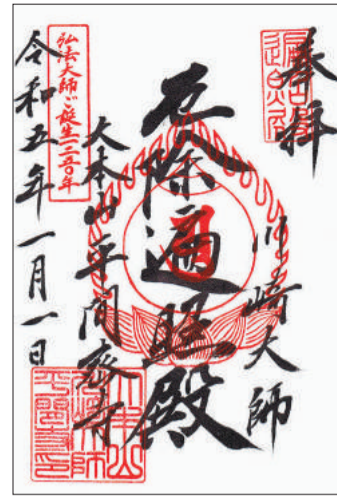 奉拝
川崎大師
厄除遍照殿
大本山平間寺
弘法大師ご誕生一二五〇年
令和五年一月一日